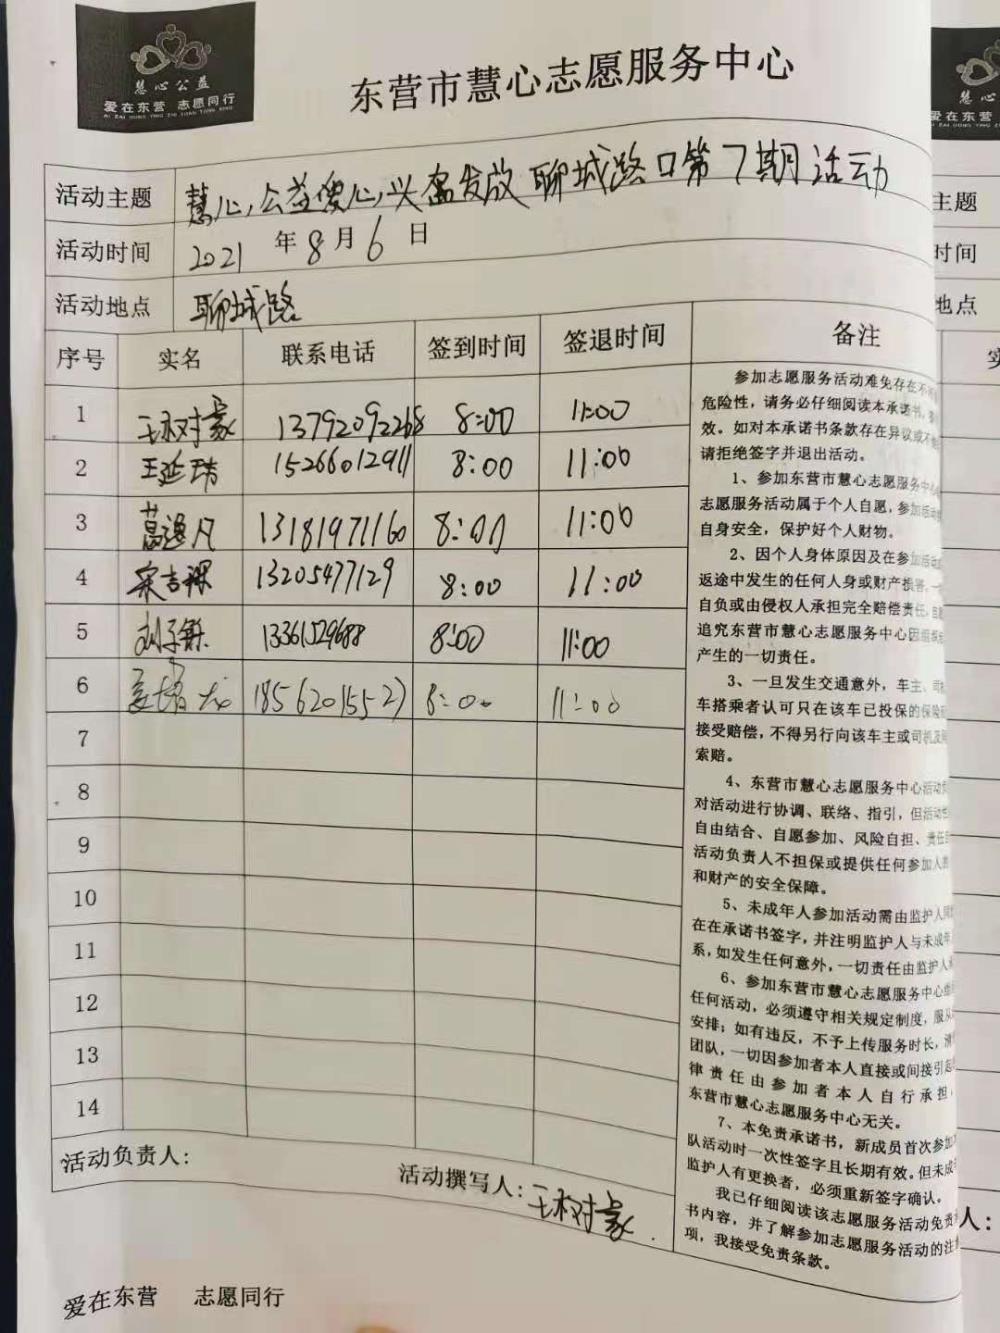 慧心公益
爱在东营 志愿同行
AI ZAI DONG YING ZHI YUAN TONG XING
东营市慧心志愿服务中心
慧心
爱在东营
活动主题 慧心公益爱心发放 聊城路口第7期活动
主题
活动时间 2021 年 8 月 6 日
时间
活动地点 聊城路
地点
序号 实名 联系电话 签到时间 签退时间 备注
实
1 王树豪 13792092268 8:00 11:00
2 王延玮 15266012911 8:00 11:00
3 葛逸凡 13181971160 8:00 11:00
4 宋吉禄 13205477129 8:00 11:00
5 刘子铄 13361529688 8:00 11:00
6 18562015527 8:00 11:00
7
8
9
10
11
12
13
14
参加志愿服务活动难免存在不
危险性，请务必仔细阅读本承诺书，
效。如对本承诺书条款存在异议或不
请拒绝签字并退出活动。
1、参加东营市慧心志愿服务中
志愿服务活动属于个人自愿，参加活动
自身安全，保护好个人财物。
2、因个人身体原因及在参加活动
返途中发生的任何人身或财产损害，一
自负或由侵权人承担完全赔偿责任，
追究东营市慧心志愿服务中心因组织
产生的一切责任。
3、一旦发生交通意外，车主、司
车搭乘者认可只在该车已投保的保险
接受赔偿，不得另行向该车主或司机及
索赔。
4、东营市慧心志愿服务中心活动负
对活动进行协调、联络、指引，但活动
自由结合、自愿参加、风险自担、责任
活动负责人不担保或提供任何参加人
和财产的安全保障。
5、未成年人参加活动需由监护人
在在承诺书签字，并注明监护人与未成年
系，如发生任何意外，一切责任由监护人
6、参加东营市慧心志愿服务中心组
任何活动，必须遵守相关规定制度，服从
安排；如有违反，不予上传服务时长，清
团队，一切因参加者本人直接或间接引起
律责任由参加者本人自行承担，
东营市慧心志愿服务中心无关。
7、本免责承诺书，新成员首次参加
队活动时一次性签字且长期有效。但未成
监护人有更换者，必须重新签字确认。
我已仔细阅读该志愿服务活动免责
书内容，并了解参加志愿服务活动的注
项，我接受免责条款。
活动负责人： 活动撰写人：王树豪
人：
爱在东营 志愿同行